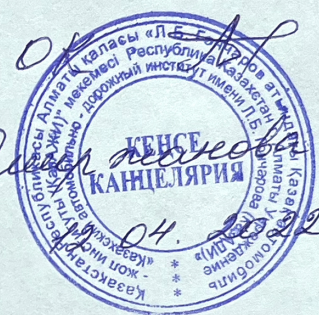 ОК
Қазақстан Республикасы Алматы қаласы «Л.Б. Гончаров атындағы Қазақ автомобиль - жол институты (ҚазАЖИ)» мекемесі
Республика Казахстан г. Алматы Учреждение «Казахский автомобильно - дорожный институт имени Л.Б. Гончарова (КазАДИ)»
КЕНСЕ
КАНЦЕЛЯРИЯ
* * *
12 04. 2022